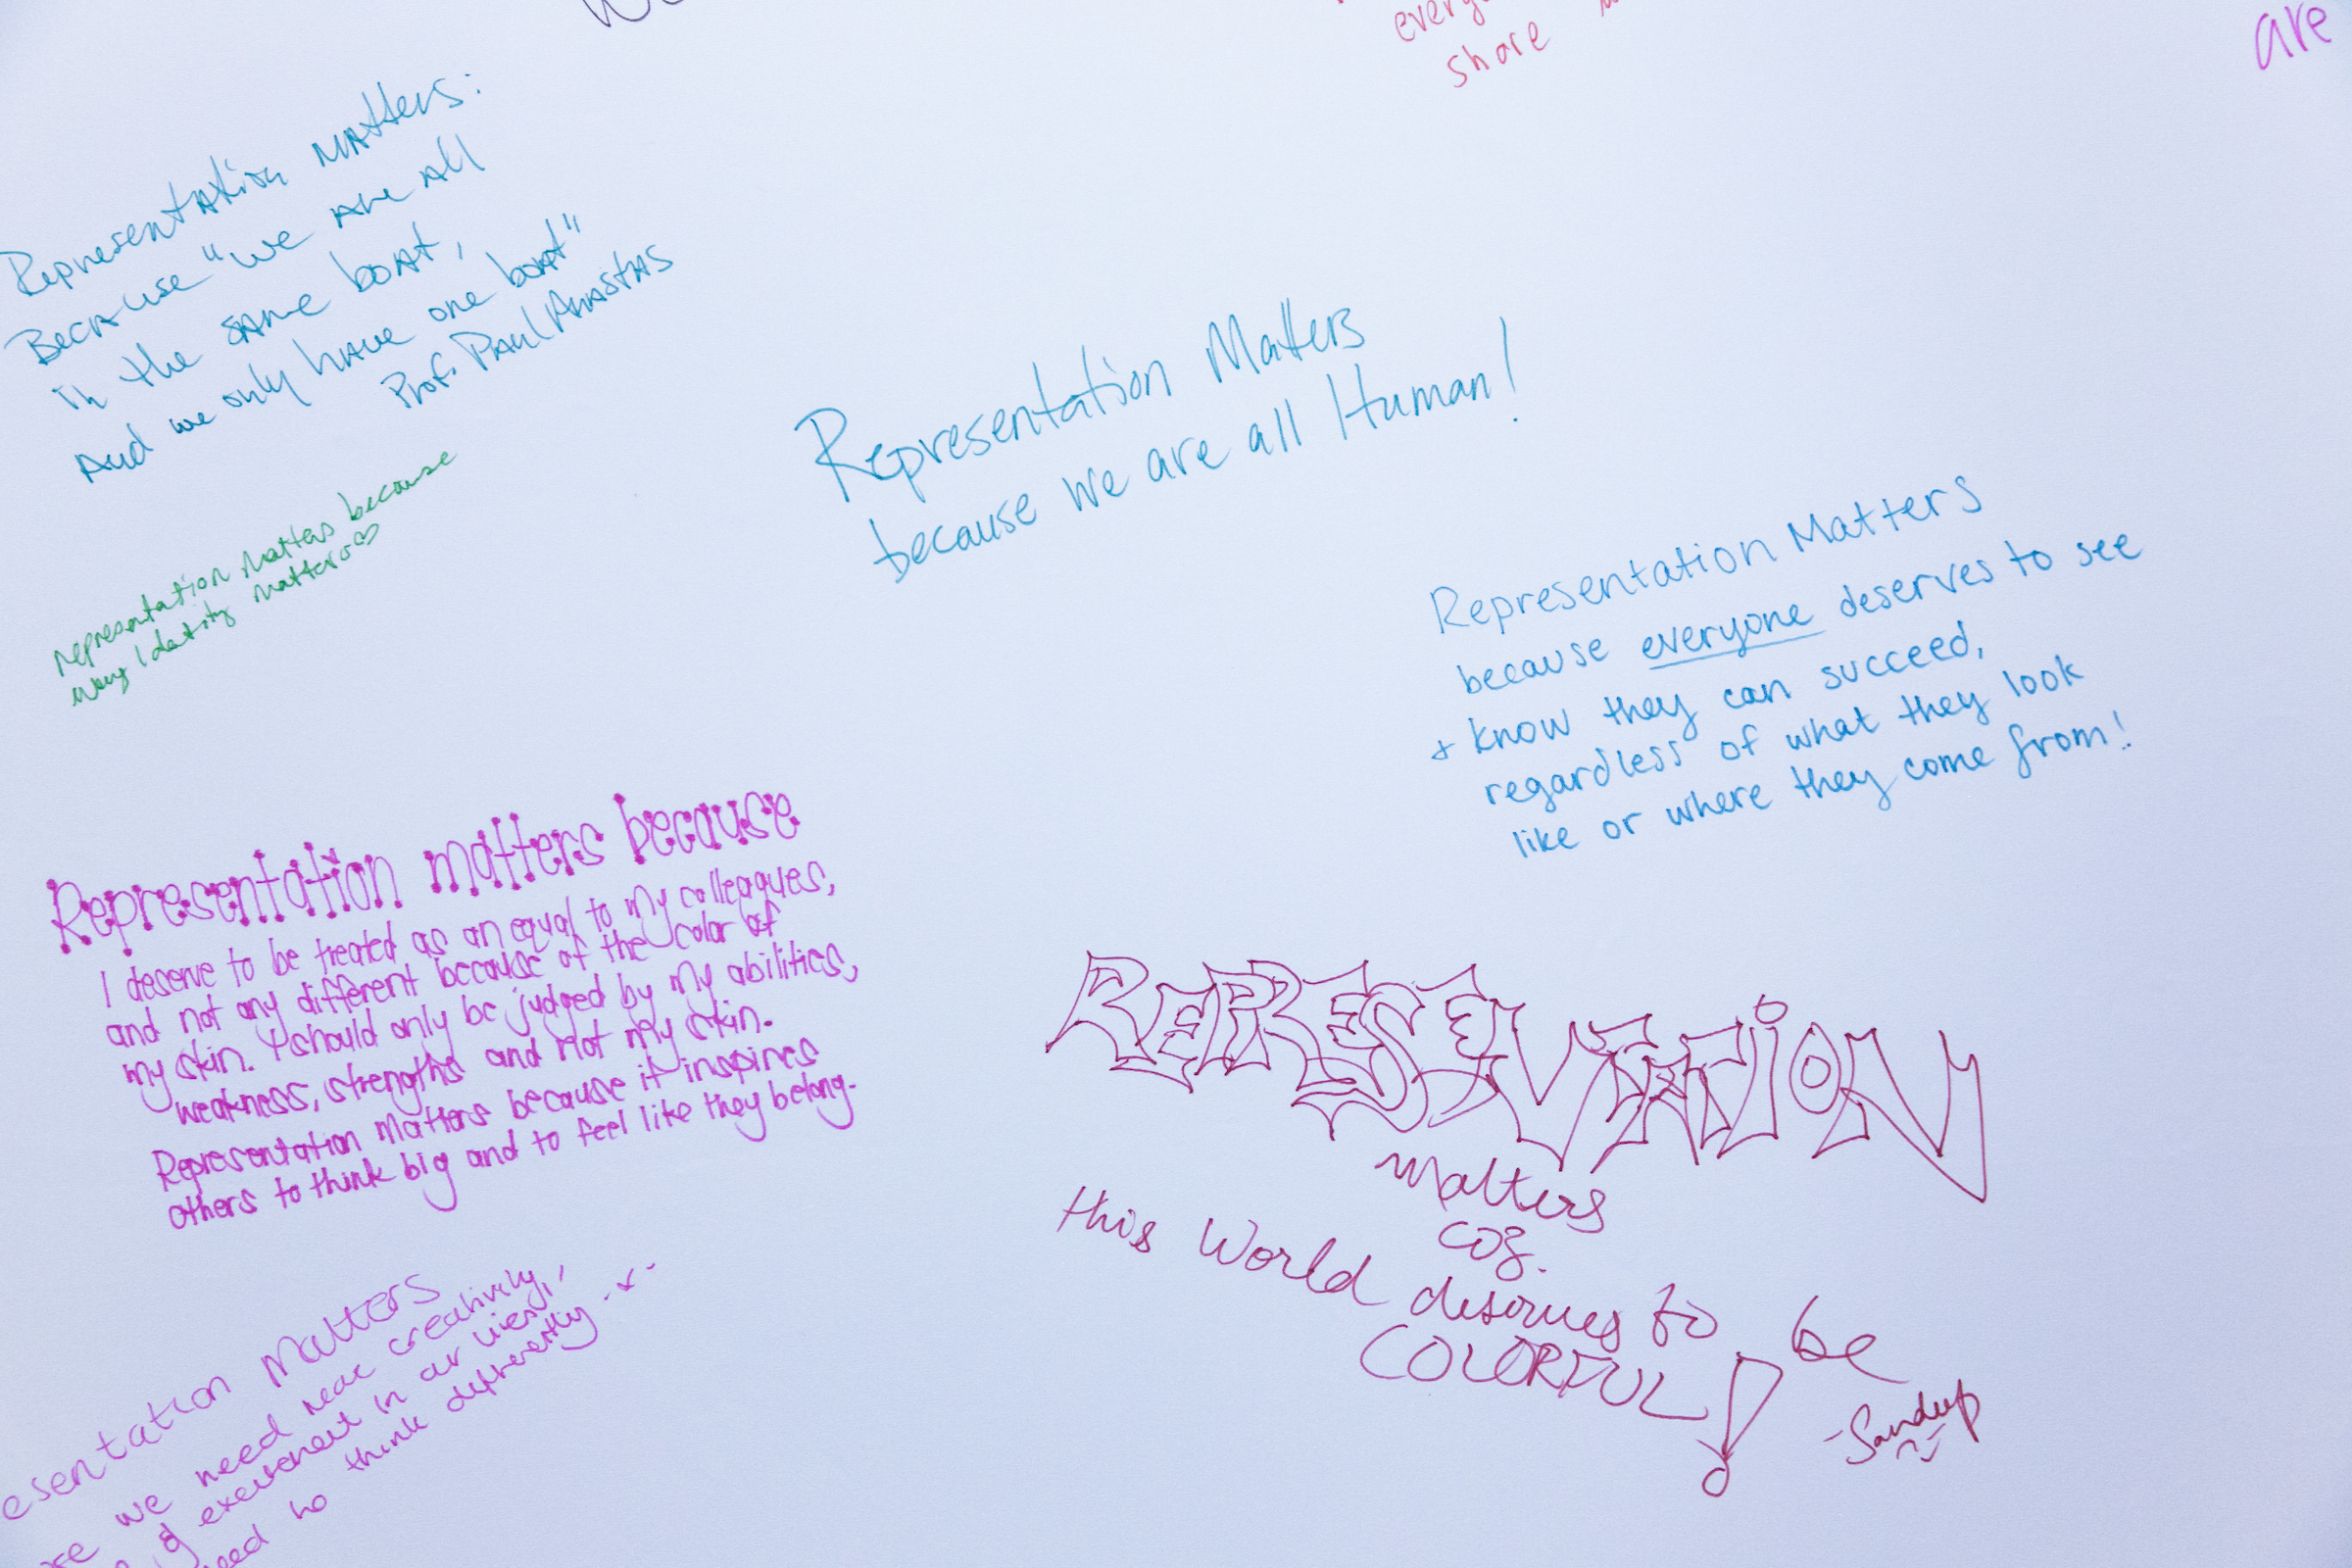 everyo
share
are
Representation Matters:
Because "we are all
in the same boat,
And we only have one boat"
Prof. Paul Anastas
representation matters because
my identity matters♡
Representation Matters
because we are all Human!
Representation Matters
because everyone deserves to see
+ know they can succeed,
regardless of what they look
like or where they come from!
Representation matters because
I deserve to be treated as an equal to my colleagues,
and not any different because of the color of
my skin. I should only be judged by my abilities,
weakness, strengths and not my skin.
Representation matters because it inspires
others to think big and to feel like they belong.
REPRESENTATION
matters
coz.
this World deserves to be
COLORFUL!
-Sandeep
esentation matters
we need more creativity,
excitement in our lives,
eed to think differently